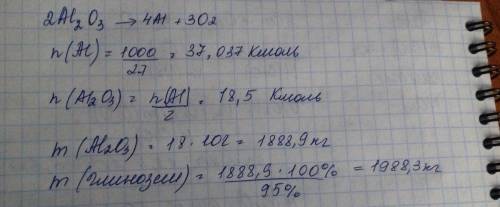 2Al₂O₃ → 4Al + 3O₂
n(Al) = 1000/27 = 37,037 Кмоль
n(Al₂O₃) = n(Al)/2 = 18,5 Кмоль
m(Al₂O₃) = 18 · 102 = 1888,9 кг
m(глинозем) = 1888,9 · 100%/95% = 1988,3 кг